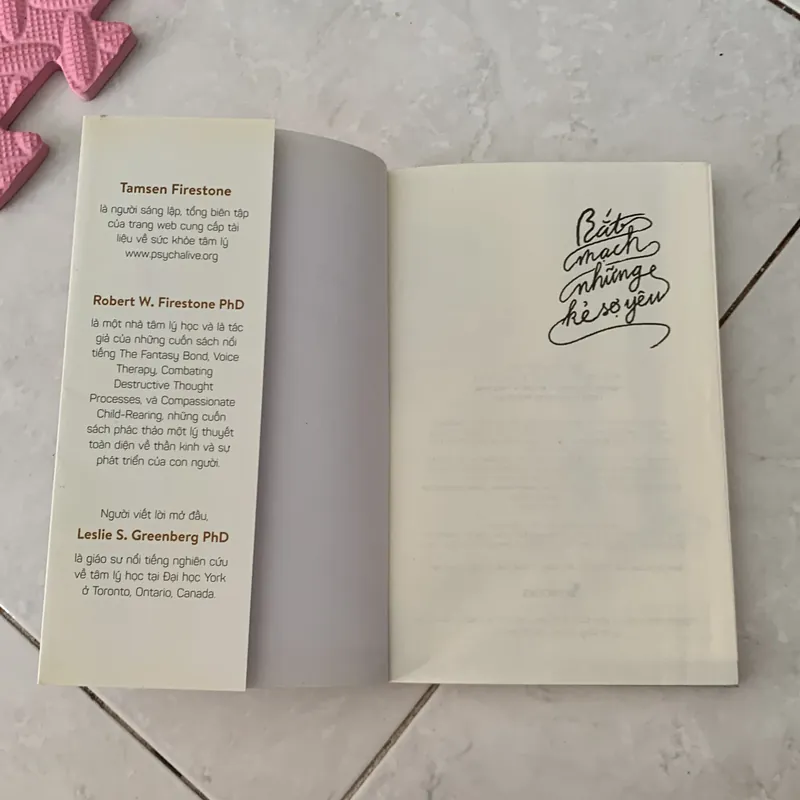 Tamsen Firestone
là người sáng lập, tổng biên tập
của trang web cung cấp tài
liệu về sức khỏe tâm lý
www.psychalive.org
Robert W. Firestone PhD
là một nhà tâm lý học và là tác
giả của những cuốn sách nổi
tiếng The Fantasy Bond, Voice
Therapy, Combating
Destructive Thought
Processes, và Compassionate
Child-Rearing, những cuốn
sách phác thảo một lý thuyết
toàn diện về thần kinh và sự
phát triển của con người.
Người viết lời mở đầu,
Leslie S. Greenberg PhD
là giáo sư nổi tiếng nghiên cứu
về tâm lý học tại Đại học York
ở Toronto, Ontario, Canada.
Bắt
mạch
những
kẻ sợ yêu